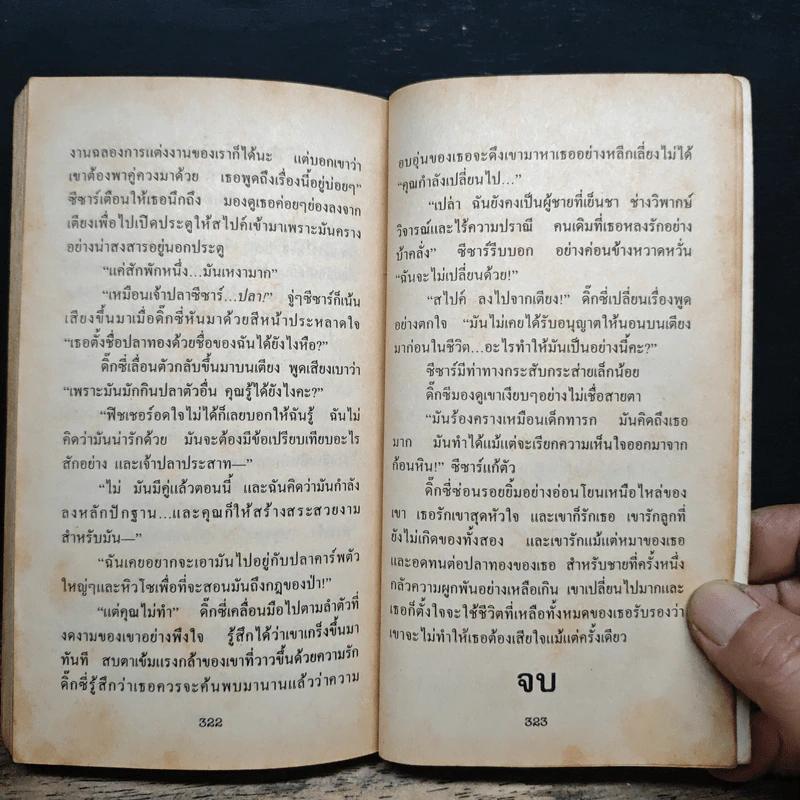 งานฉลองการแต่งงานของเราก็ได้นะ แต่บอกเขาว่า
เขาต้องพาคู่ควงมาด้วย เธอพูดถึงเรื่องนี้อยู่บ่อยๆ”
ซีซาร์เตือนให้เธอนึกถึง มองดูเธอค่อยๆย่องลงจาก
เตียงเพื่อไปเปิดประตูให้สไปค์เข้ามาเพราะมันคราง
อย่างน่าสงสารอยู่นอกประตู
“แค่สักพักหนึ่ง...มันเหงามาก”
“เหมือนเจ้าปลาซีซาร์...ปลา!” จู่ๆซีซาร์ก็เน้น
เสียงขึ้นมาเมื่อดิ๊กซี่หันมาด้วยสีหน้าประหลาดใจ
“เธอตั้งชื่อปลาทองด้วยชื่อของฉันได้ยังไงหือ?”
ดิ๊กซี่เลื่อนตัวกลับขึ้นมาบนเตียง พูดเสียงเบาว่า
“เพราะมันมักกินปลาตัวอื่น คุณรู้ได้ยังไงคะ?”
“ฟิชเชอร์อดใจไม่ได้ก็เลยบอกให้ฉันรู้ ฉันไม่
คิดว่ามันน่ารักด้วย มันจะต้องมีข้อเปรียบเทียบอะไร
สักอย่าง และเจ้าปลาประสาท—”
“ไม่ มันมีคู่แล้วตอนนี้ และฉันคิดว่ามันกำลัง
ลงหลักปักฐาน...และคุณก็ให้สร้างสระสวยงาม
สำหรับมัน—”
“ฉันเคยอยากจะเอามันไปอยู่กับปลาคาร์พตัว
ใหญ่ๆและหิวโซเพื่อที่จะสอนมันถึงกฎของป่า!”
“แต่คุณไม่ทำ” ดิ๊กซี่เคลื่อนมือไปตามลำตัวที่
งดงามของเขาอย่างพึงใจ รู้สึกได้ว่าเขาเกร็งขึ้นมา
ทันที สบตาเข้มแรงกล้าของเขาที่วาวขึ้นด้วยความรัก
ดิ๊กซี่รู้สึกว่าเธอควรจะค้นพบมานานแล้วว่าความ
322
อบอุ่นของเธอจะดึงเขามาหาเธออย่างหลีกเลี่ยงไม่ได้
“คุณกำลังเปลี่ยนไป...”
“เปล่า ฉันยังคงเป็นผู้ชายที่เย็นชา ช่างวิพากษ์
วิจารณ์และไร้ความปราณี คนเดิมที่เธอหลงรักอย่าง
บ้าคลั่ง” ซีซาร์รีบบอก อย่างค่อนข้างหวาดหวั่น
“ฉันจะไม่เปลี่ยนด้วย!”
“สไปค์ ลงไปจากเตียง!” ดิ๊กซี่เปลี่ยนเรื่องพูด
อย่างตกใจ “มันไม่เคยได้รับอนุญาตให้นอนบนเตียง
มาก่อนในชีวิต...อะไรทำให้มันเป็นอย่างนี้คะ?”
ซีซาร์มีท่าทางกระสับกระส่ายเล็กน้อย
ดิ๊กซี่มองดูเขาเงียบๆอย่างไม่เชื่อสายตา
“มันร้องครางเหมือนเด็กทารก มันคิดถึงเธอ
มาก มันทำได้แม้แต่จะเรียกความเห็นใจออกมาจาก
ก้อนหิน!” ซีซาร์แก้ตัว
ดิ๊กซี่ซ่อนรอยยิ้มอย่างอ่อนโยนเหนือไหล่ของ
เขา เธอรักเขาสุดหัวใจ และเขาก็รักเธอ เขารักลูกที่
ยังไม่เกิดของทั้งสอง และเขารักแม้แต่หมาของเธอ
และอดทนต่อปลาทองของเธอ สำหรับชายที่ครั้งหนึ่ง
กลัวความผูกพันอย่างเหลือเกิน เขาเปลี่ยนไปมากและ
เธอก็ตั้งใจจะใช้ชีวิตที่เหลือทั้งหมดของเธอรับรองว่า
เขาจะไม่ทำให้เธอต้องเสียใจแม้แต่ครั้งเดียว
จบ
323